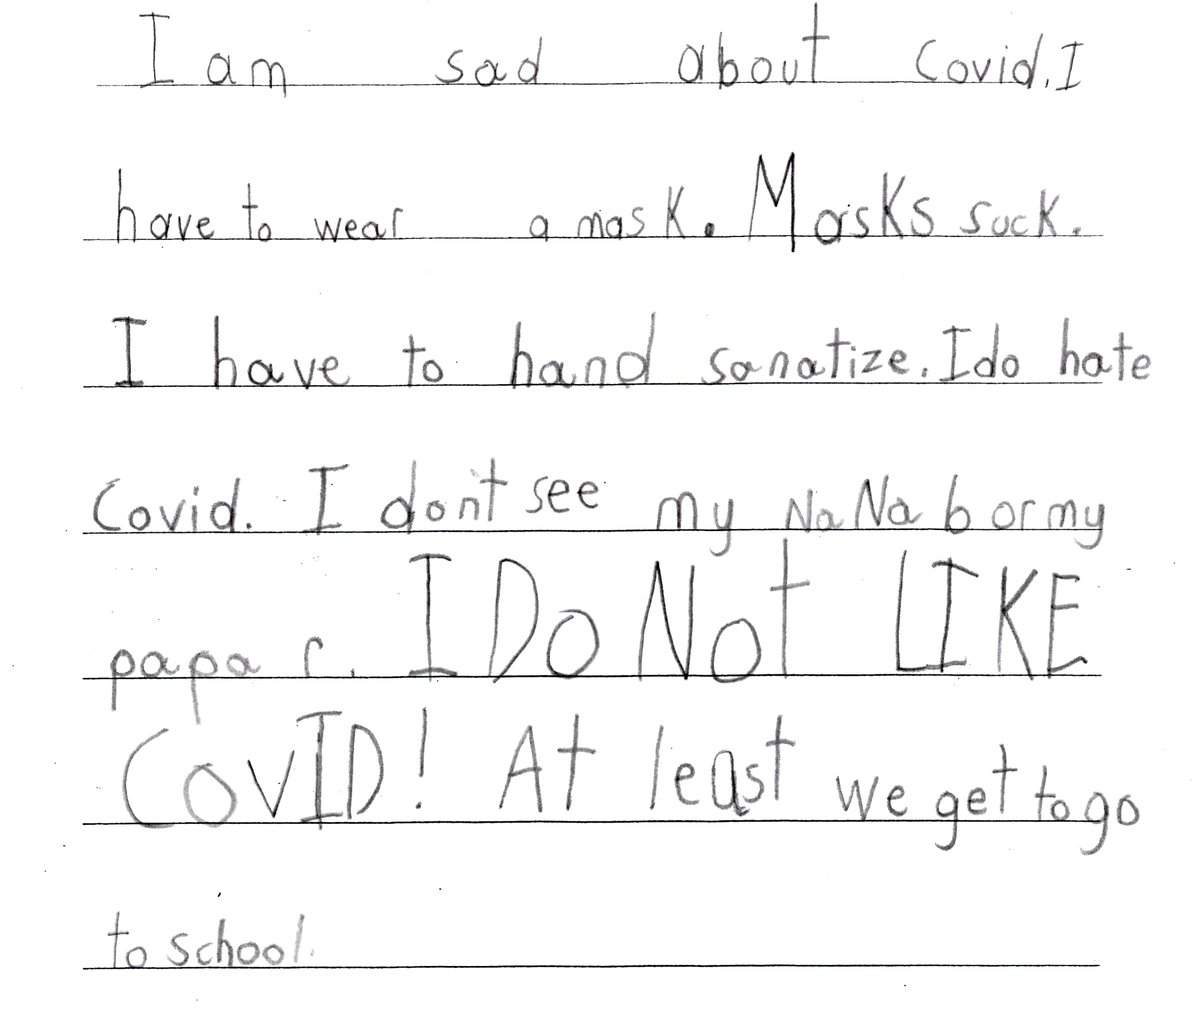 I am sad about Covid. I
have to wear a mask. Masks suck.
I have to hand sanatize. I do hate
Covid. I don't see my NaNa b or my
papa r. I Do Not LIKE
CoVID! At least we get to go
to school.